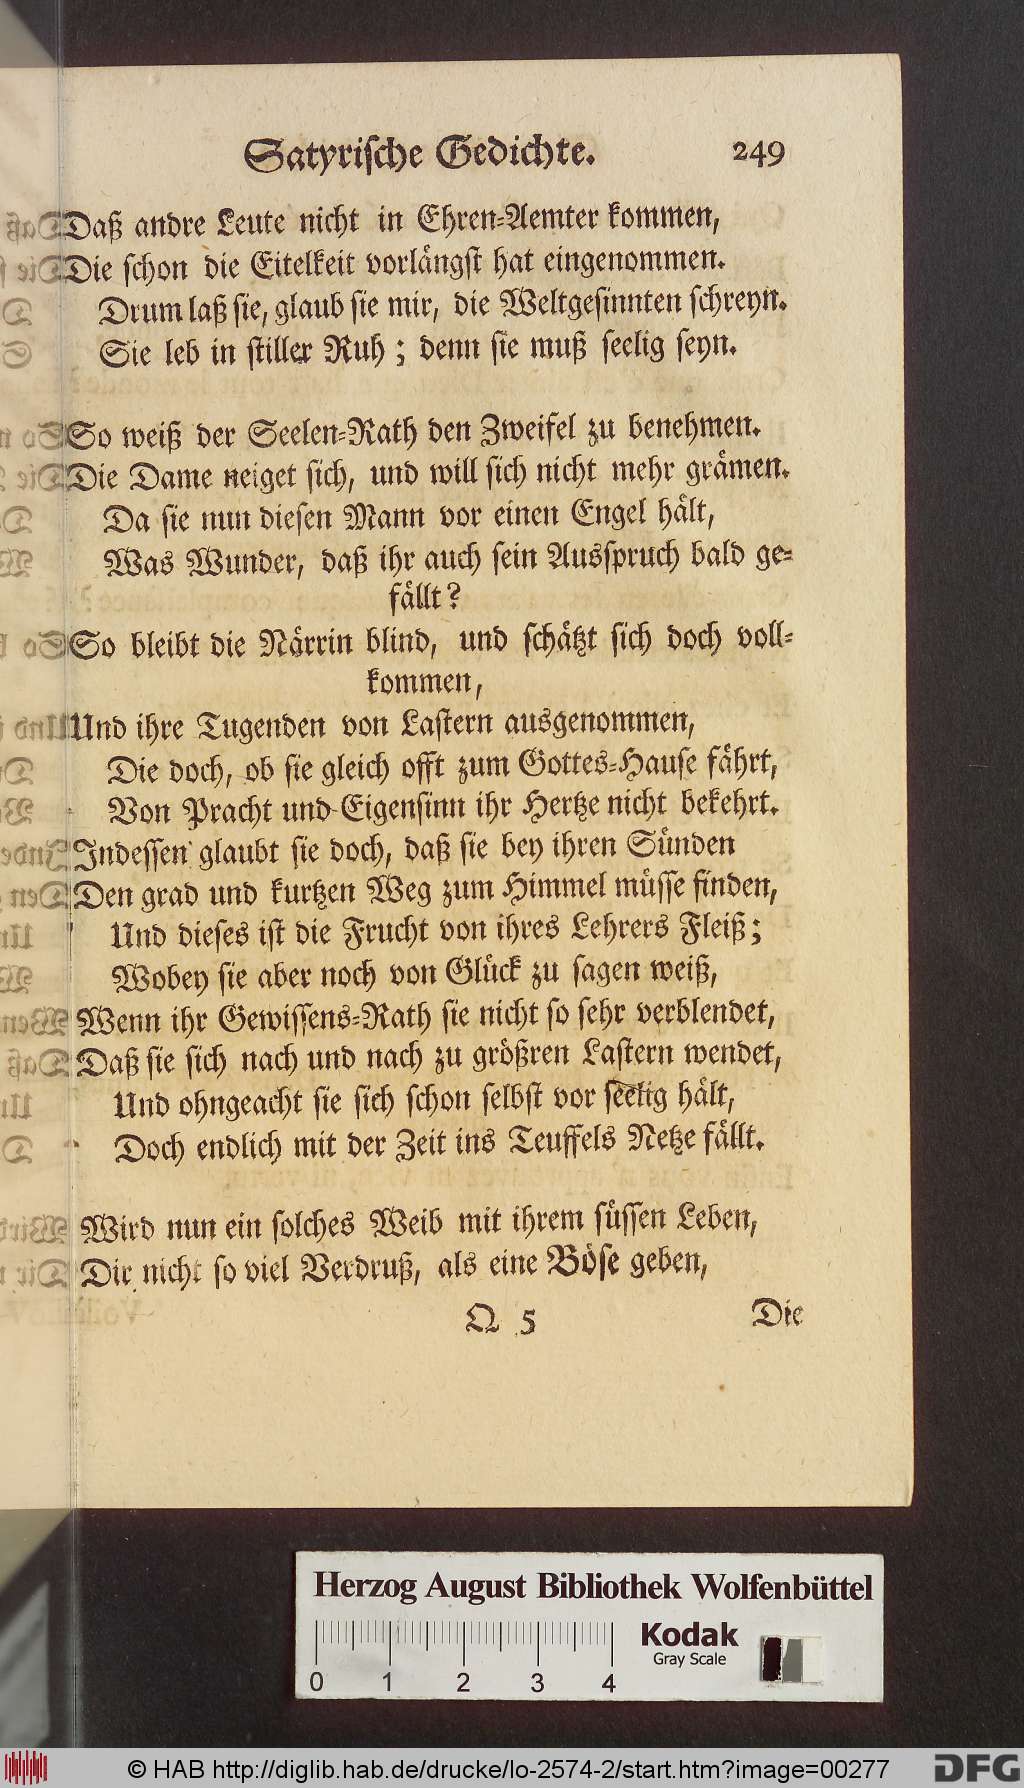 Satyrische Gedichte. 249
Daß andre Leute nicht in Ehren-Aemter kommen,
Die schon die Eitelkeit vorlängst hat eingenommen.
Drum laß sie, glaub sie mir, die Weltgesinnten schreyn.
Sie leb in stiller Ruh; denn sie muß seelig seyn.
So weiß der Seelen-Rath den Zweifel zu benehmen.
Die Dame neiget sich, und will sich nicht mehr grämen.
Da sie nun diesen Mann vor einen Engel hält,
Was Wunder, daß ihr auch sein Ausspruch bald ge-
fällt?
So bleibt die Närrin blind, und schätzt sich doch voll-
kommen,
Und ihre Tugenden von Lastern ausgenommen,
Die doch, ob sie gleich offt zum Gottes-Hause fährt,
Von Pracht und Eigensinn ihr Hertze nicht bekehrt.
Indessen glaubt sie doch, daß sie bey ihren Sünden
Den grad und kurtzen Weg zum Himmel müsse finden,
Und dieses ist die Frucht von ihres Lehrers Fleiß;
Wobey sie aber noch von Glück zu sagen weiß,
Wenn ihr Gewissens-Rath sie nicht so sehr verblendet,
Daß sie sich nach und nach zu größren Lastern wendet,
Und ohngeacht sie sich schon selbst vor seelig hält,
Doch endlich mit der Zeit ins Teuffels Netze fällt.
Wird nun ein solches Weib mit ihrem süssen Leben,
Dir nicht so viel Verdruß, als eine Böse geben,
Q 5 Die
Herzog August Bibliothek Wolfenbüttel
Kodak
Gray Scale
0 1 2 3 4
© HAB http://diglib.hab.de/drucke/lo-2574-2/start.htm?image=00277
DFG